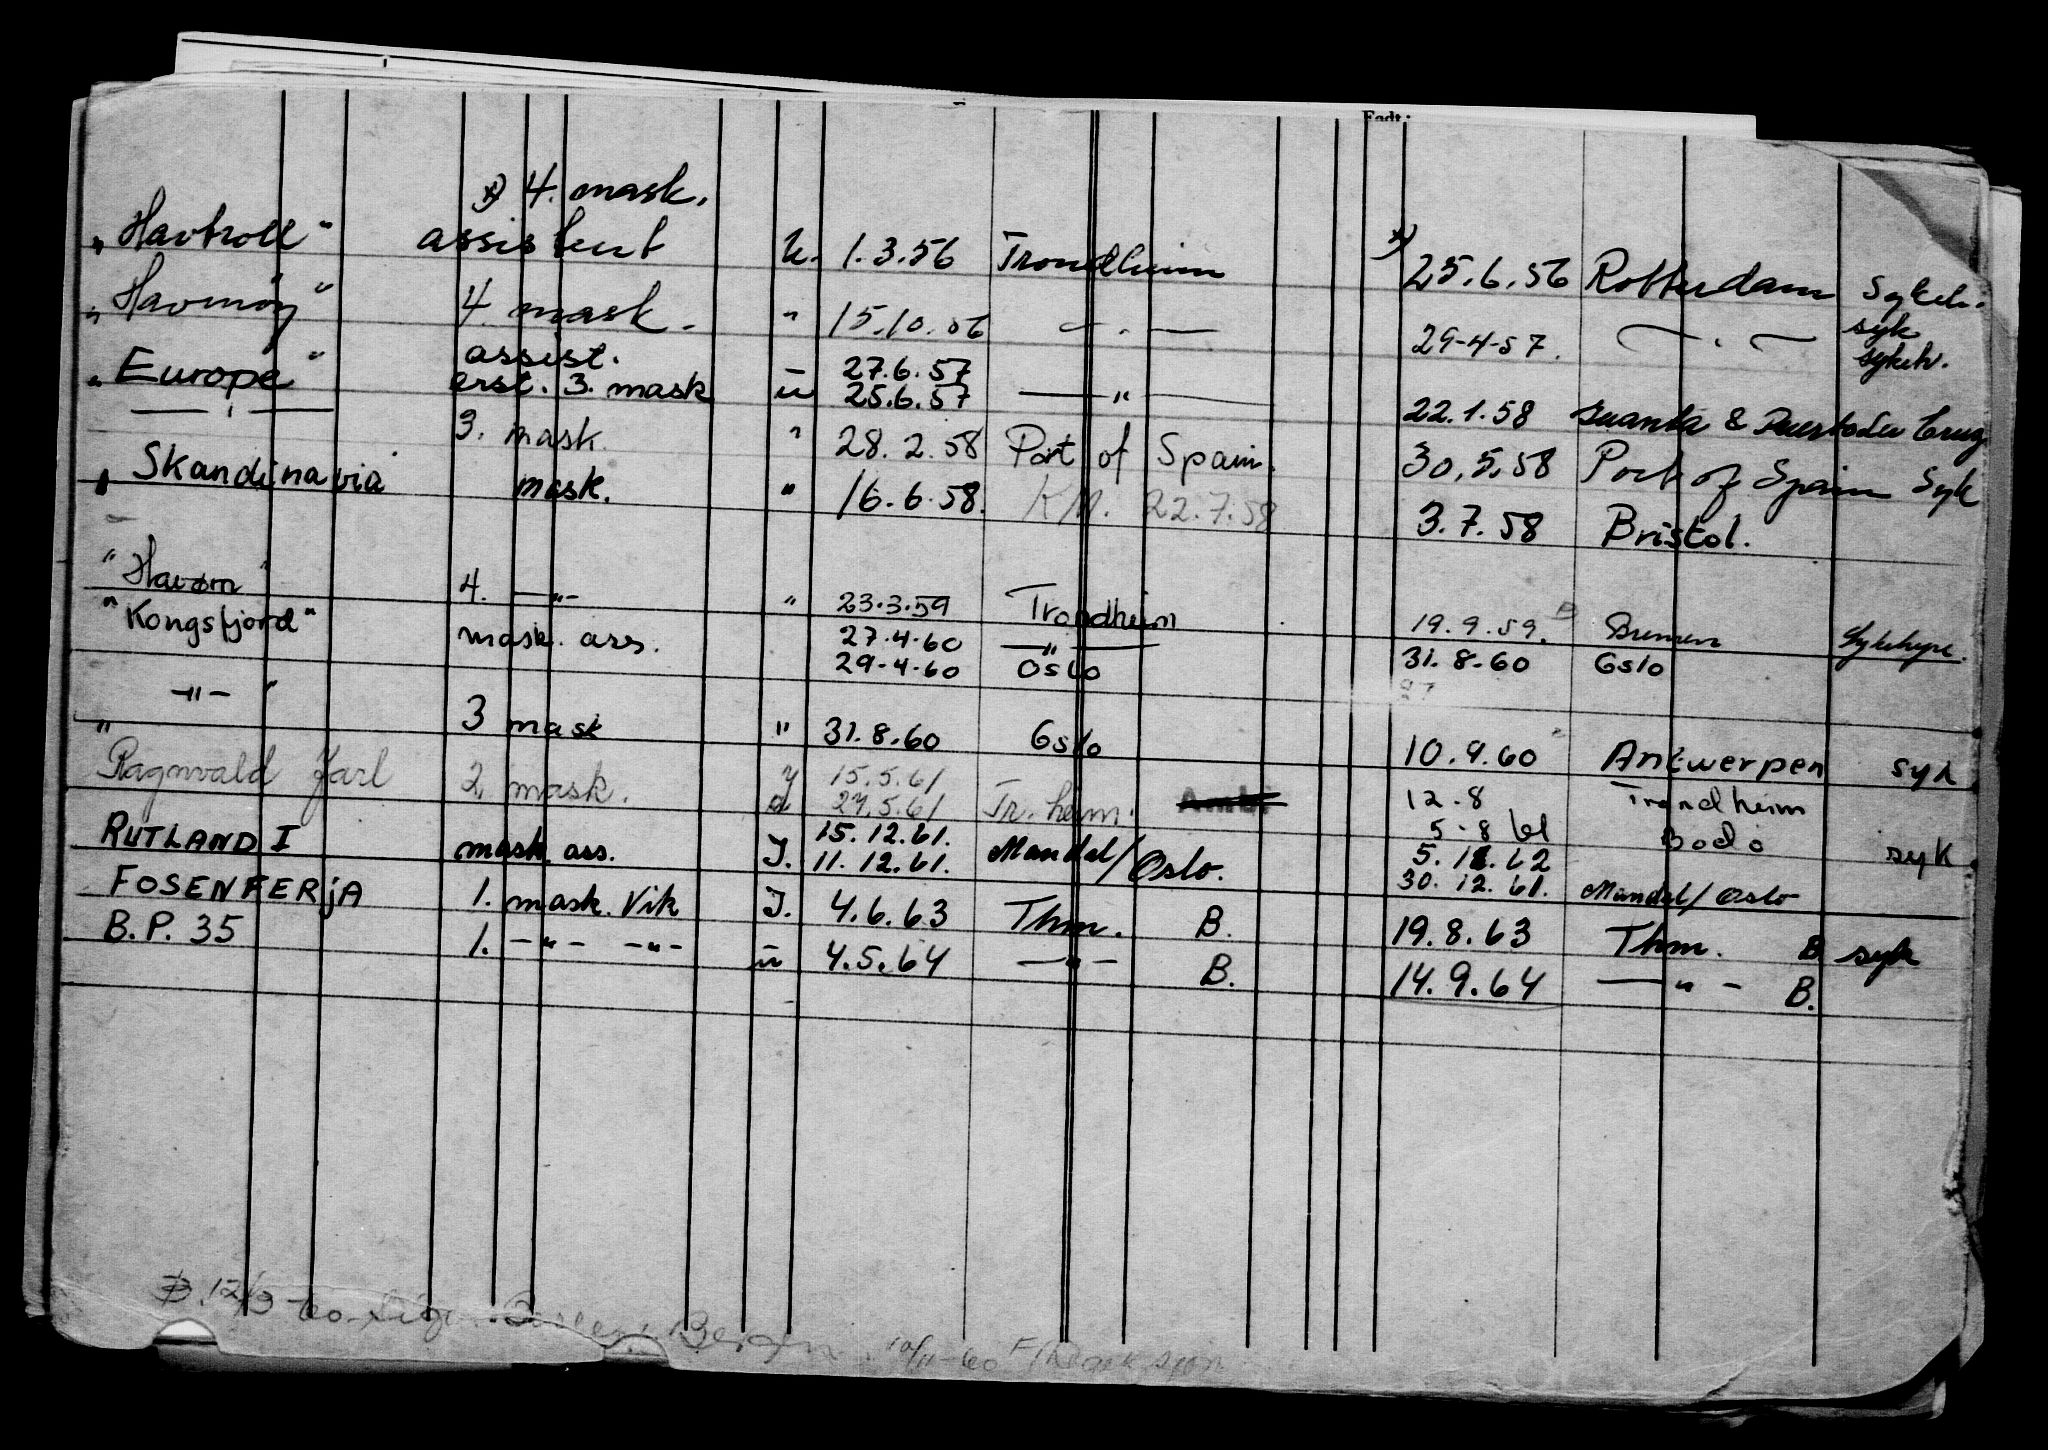 Fadt:
x) 4. mask.
"Havtroll" assistent u. 1.3.56 Trondheim x) 25.6.56 Rotterdam Sykeh.
"Havmøy" 4. mask. " 15.10.56 — " — 29-4-57. — " — syk sykeh.
assist. 27.6.57
"Europe" erst. 3. mask u 25.6.57 — " — 22.1.58 &
— " — 3. mask. " 28.2.58 Port of Spain. 30.5.58 Port of Spain Syk
"Skandinavia" mask. " 16.6.58. K.M. 22.7.58 3.7.58 Bristol.
"Havørn" 4. — " — " 23.3.59 Trondheim 19.9.59. Bremen Sykehjse.
"Kongsfjord" mask. ass. 27.4.60 — " — 31.8.60 Oslo
29-4-60 Oslo
— " — " 3 mask " 31.8.60 Oslo 10.9.60 Antwerpen syk
Ragnvald Jarl 2. mask. y 15.5.61 12.8 Trondheim
d 27.5.61 Tr.heim. 5-8 61 Bodø syk
RUTLAND I mask. ass. J. 15.12.61. Mandal/Oslo. 5.1.62
11.12.61. 30.12.61. Mandal/Oslo
FOSENFERJA 1. mask. Vik J. 4.6.63 Thm. B. 19.8.63 Thm. B syk
B.P. 35 1. — " — — " — u 4.5.64 — " — B. 14.9.64 — " — B.
B. 12/3-60 Bergen 10/11-60